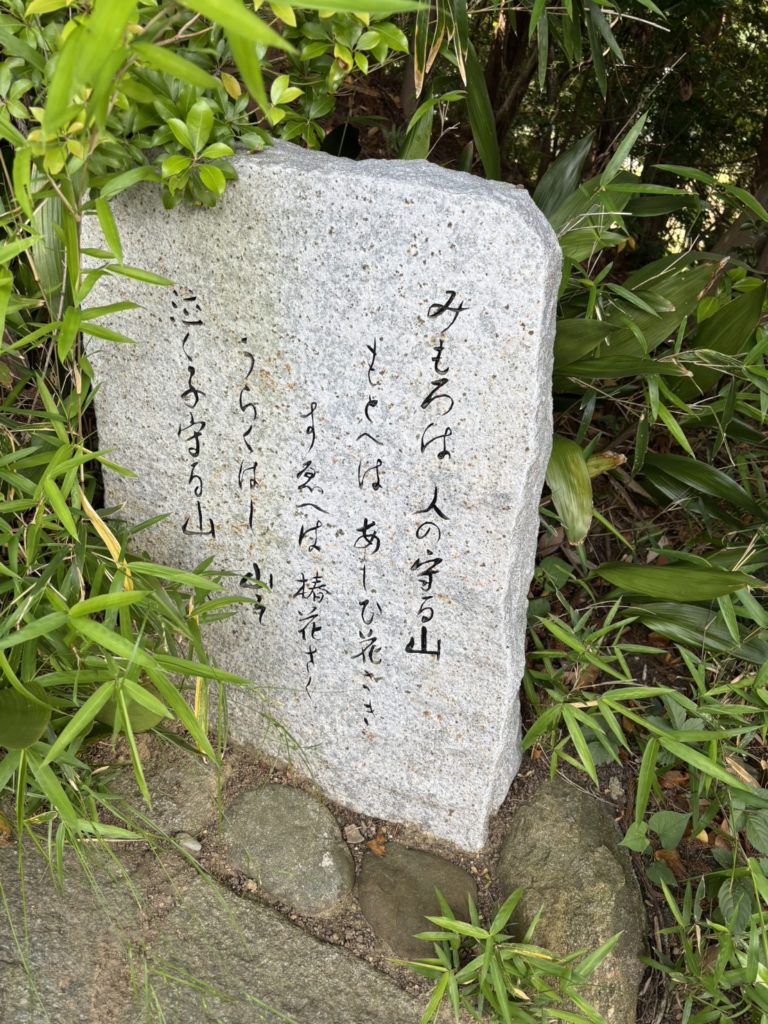 みもろは 人の守る山
もとへは あしび花さき
すゑへは 椿花さく
うらくはし 山そ
泣く子守る山